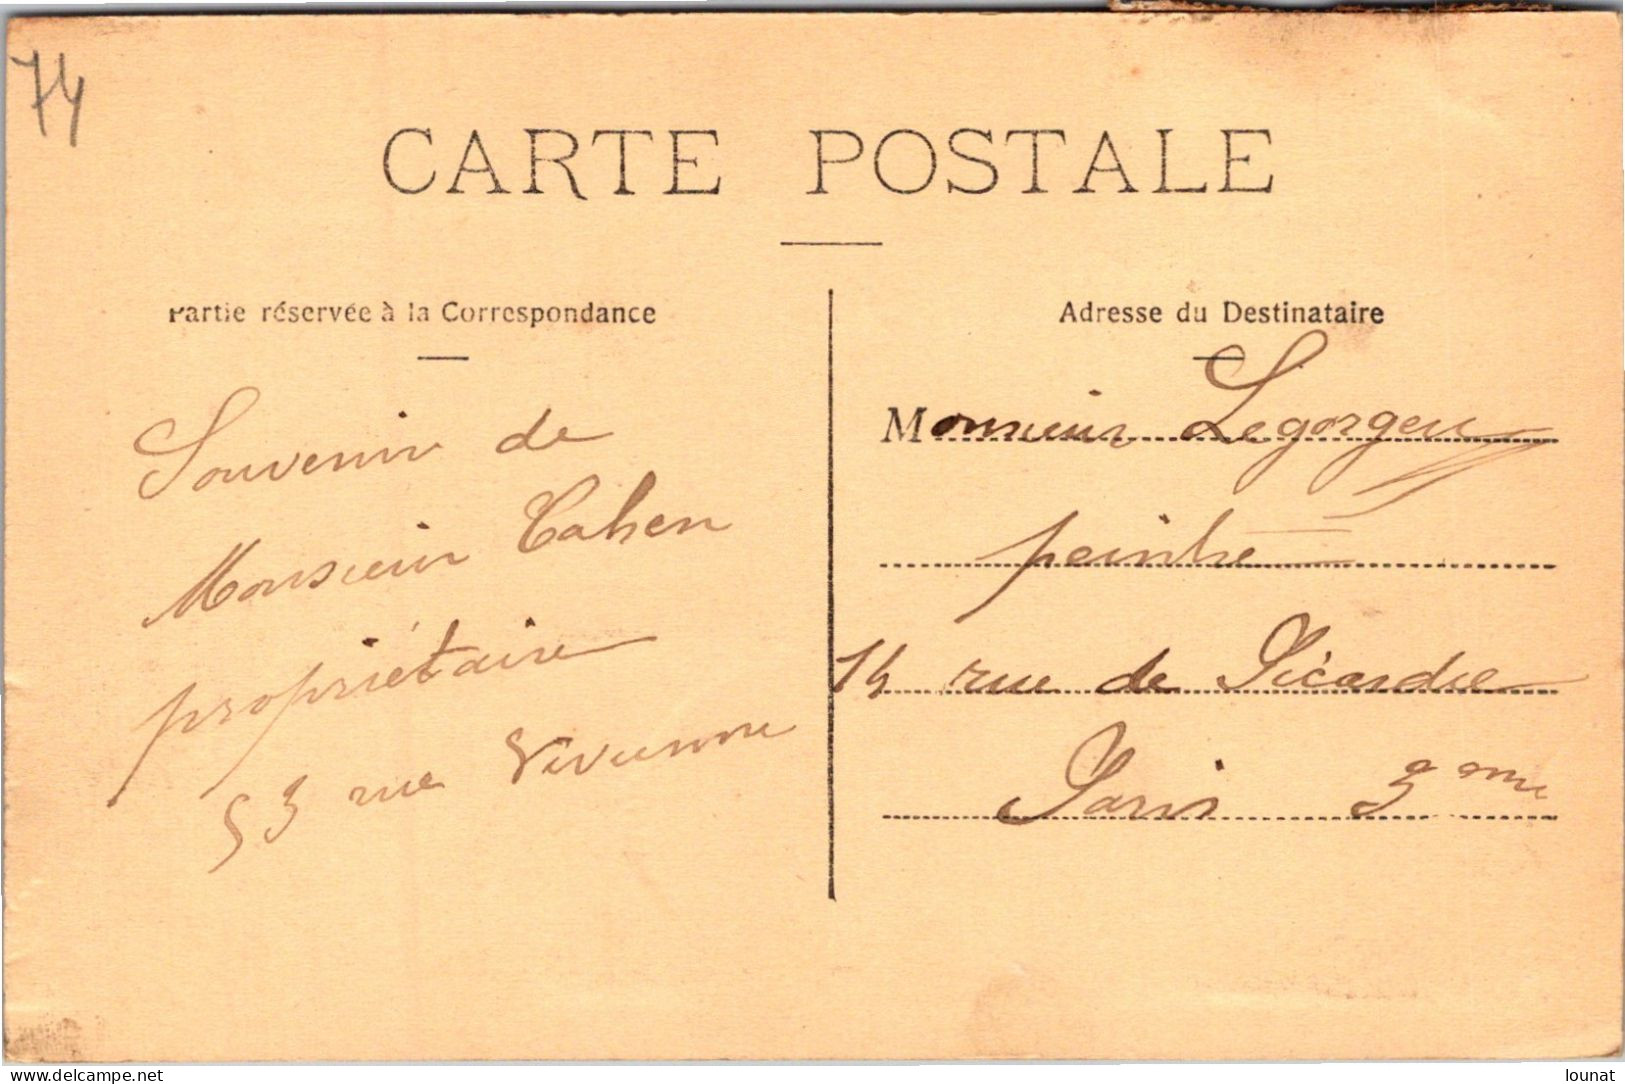 74
CARTE POSTALE
Partie réservée à la Correspondance
Souvenir de
Monsieur Cahen
propriétaire
53 rue Vivienne
Adresse du Destinataire
Monsieur Legorgeu
peintre
14 rue de Picardie
Paris 3eme
www.delcampe.net
lounat